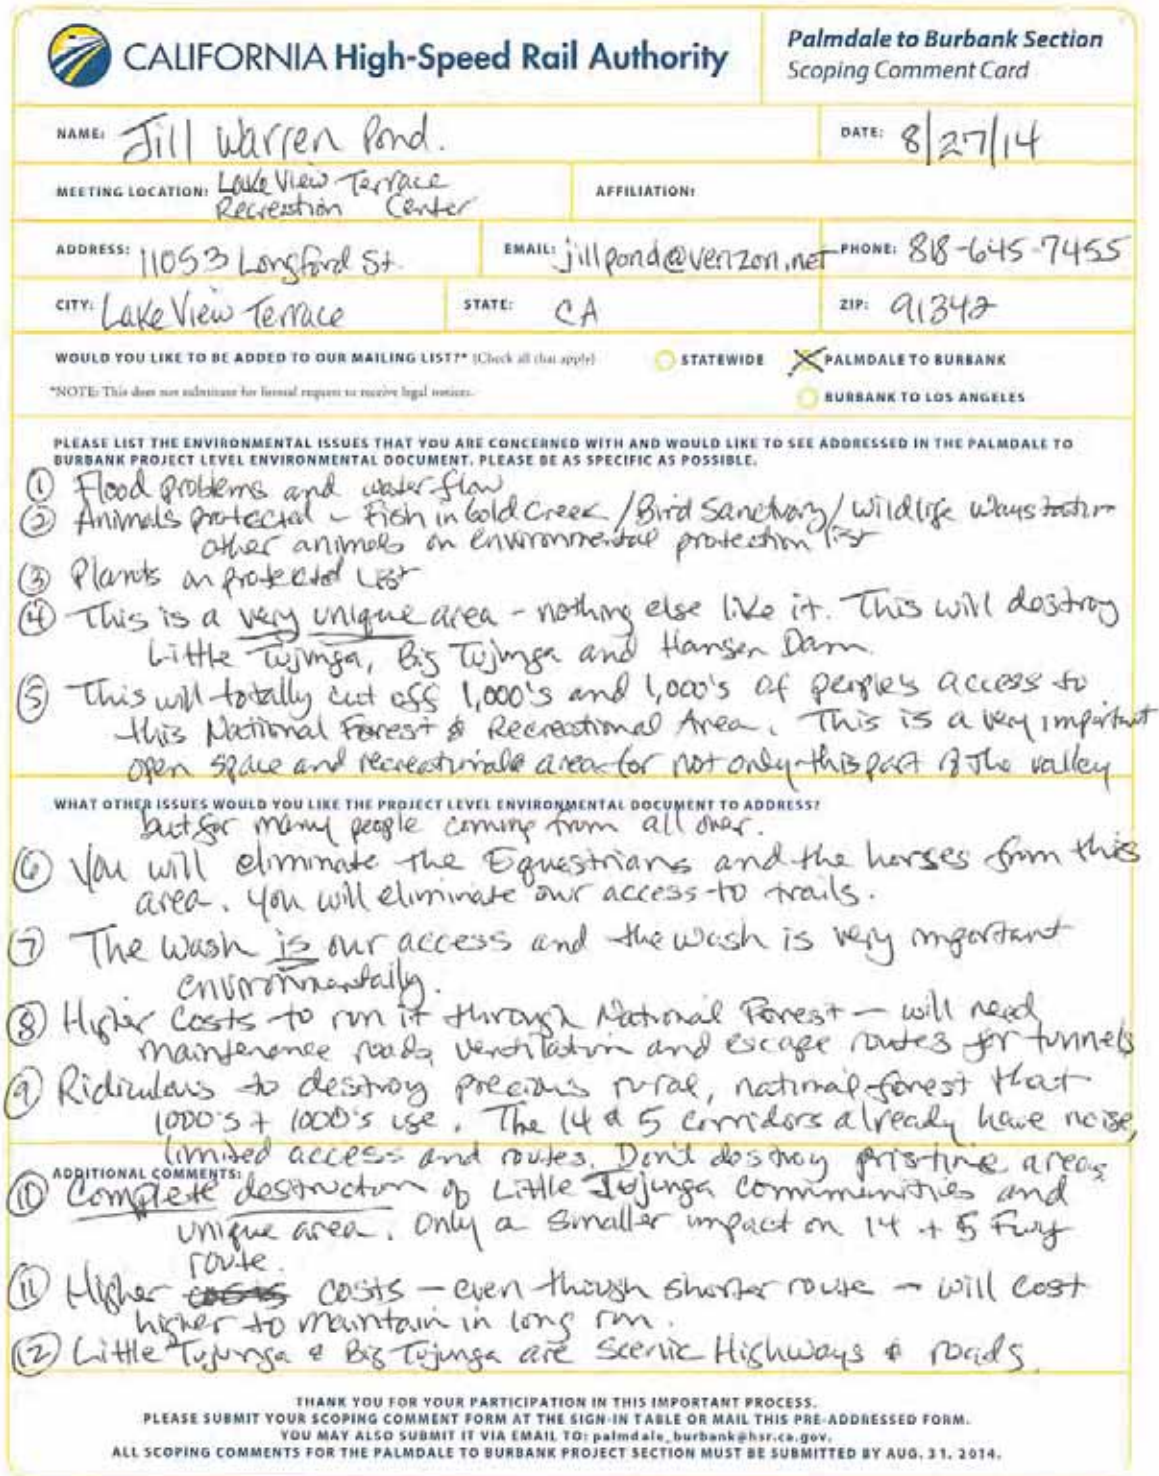 CALIFORNIA High-Speed Rail Authority
Palmdale to Burbank Section
Scoping Comment Card
NAME: Jill Warren Pond.
DATE: 8/27/14
MEETING LOCATION: Lake View Terrace
Recreation Center
AFFILIATION:
ADDRESS: 11053 Longford St.
EMAIL: jillpond@verizon.net
PHONE: 818-645-7455
CITY: Lake View Terrace
STATE: CA
ZIP: 91342
WOULD YOU LIKE TO BE ADDED TO OUR MAILING LIST?* (Check all that apply)
STATEWIDE
PALMDALE TO BURBANK
*NOTE: This does not substitute for formal request to receive legal notices.
BURBANK TO LOS ANGELES
PLEASE LIST THE ENVIRONMENTAL ISSUES THAT YOU ARE CONCERNED WITH AND WOULD LIKE TO SEE ADDRESSED IN THE PALMDALE TO
BURBANK PROJECT LEVEL ENVIRONMENTAL DOCUMENT. PLEASE BE AS SPECIFIC AS POSSIBLE.
① Flood problems and water flow
② Animals protected - Fish in Gold Creek / Bird Sanctuary / Wildlife Waystation
other animals on environmental protection list
③ Plants on protected List
④ This is a very unique area - nothing else like it. This will destroy
Little Tujunga, Big Tujunga and Hansen Dam.
⑤ This will totally cut off 1,000's and 1,000's of people's access to
this National Forest & Recreational Area. This is a very important
open space and recreational area for not only this part of the valley
WHAT OTHER ISSUES WOULD YOU LIKE THE PROJECT LEVEL ENVIRONMENTAL DOCUMENT TO ADDRESS?
but for many people coming from all over.
⑥ You will eliminate the Equestrians and the horses from this
area. You will eliminate our access to trails.
⑦ The wash is our access and the wash is very important
environmentally.
⑧ Higher Costs to run it through National Forest - will need
maintenence roads, ventilation and escape routes for tunnels
⑨ Ridiculous to destroy precious rural, national forest that
1000's + 1000's use. The 14 & 5 corridors already have noise,
limited access and routes. Don't destroy pristine areas
ADDITIONAL COMMENTS:
⑩ Complete destruction of Little Tujunga communities and
unique area. Only a smaller impact on 14 + 5 Fwy
route.
⑪ Higher costs costs - even though shorter route - will cost
higher to maintain in long run.
⑫ Little Tujunga & Big Tujunga are Scenic Highways & roads.
THANK YOU FOR YOUR PARTICIPATION IN THIS IMPORTANT PROCESS.
PLEASE SUBMIT YOUR SCOPING COMMENT FORM AT THE SIGN-IN TABLE OR MAIL THIS PRE-ADDRESSED FORM.
YOU MAY ALSO SUBMIT IT VIA EMAIL TO: palmdale_burbank@hsr.ca.gov.
ALL SCOPING COMMENTS FOR THE PALMDALE TO BURBANK PROJECT SECTION MUST BE SUBMITTED BY AUG. 31, 2014.